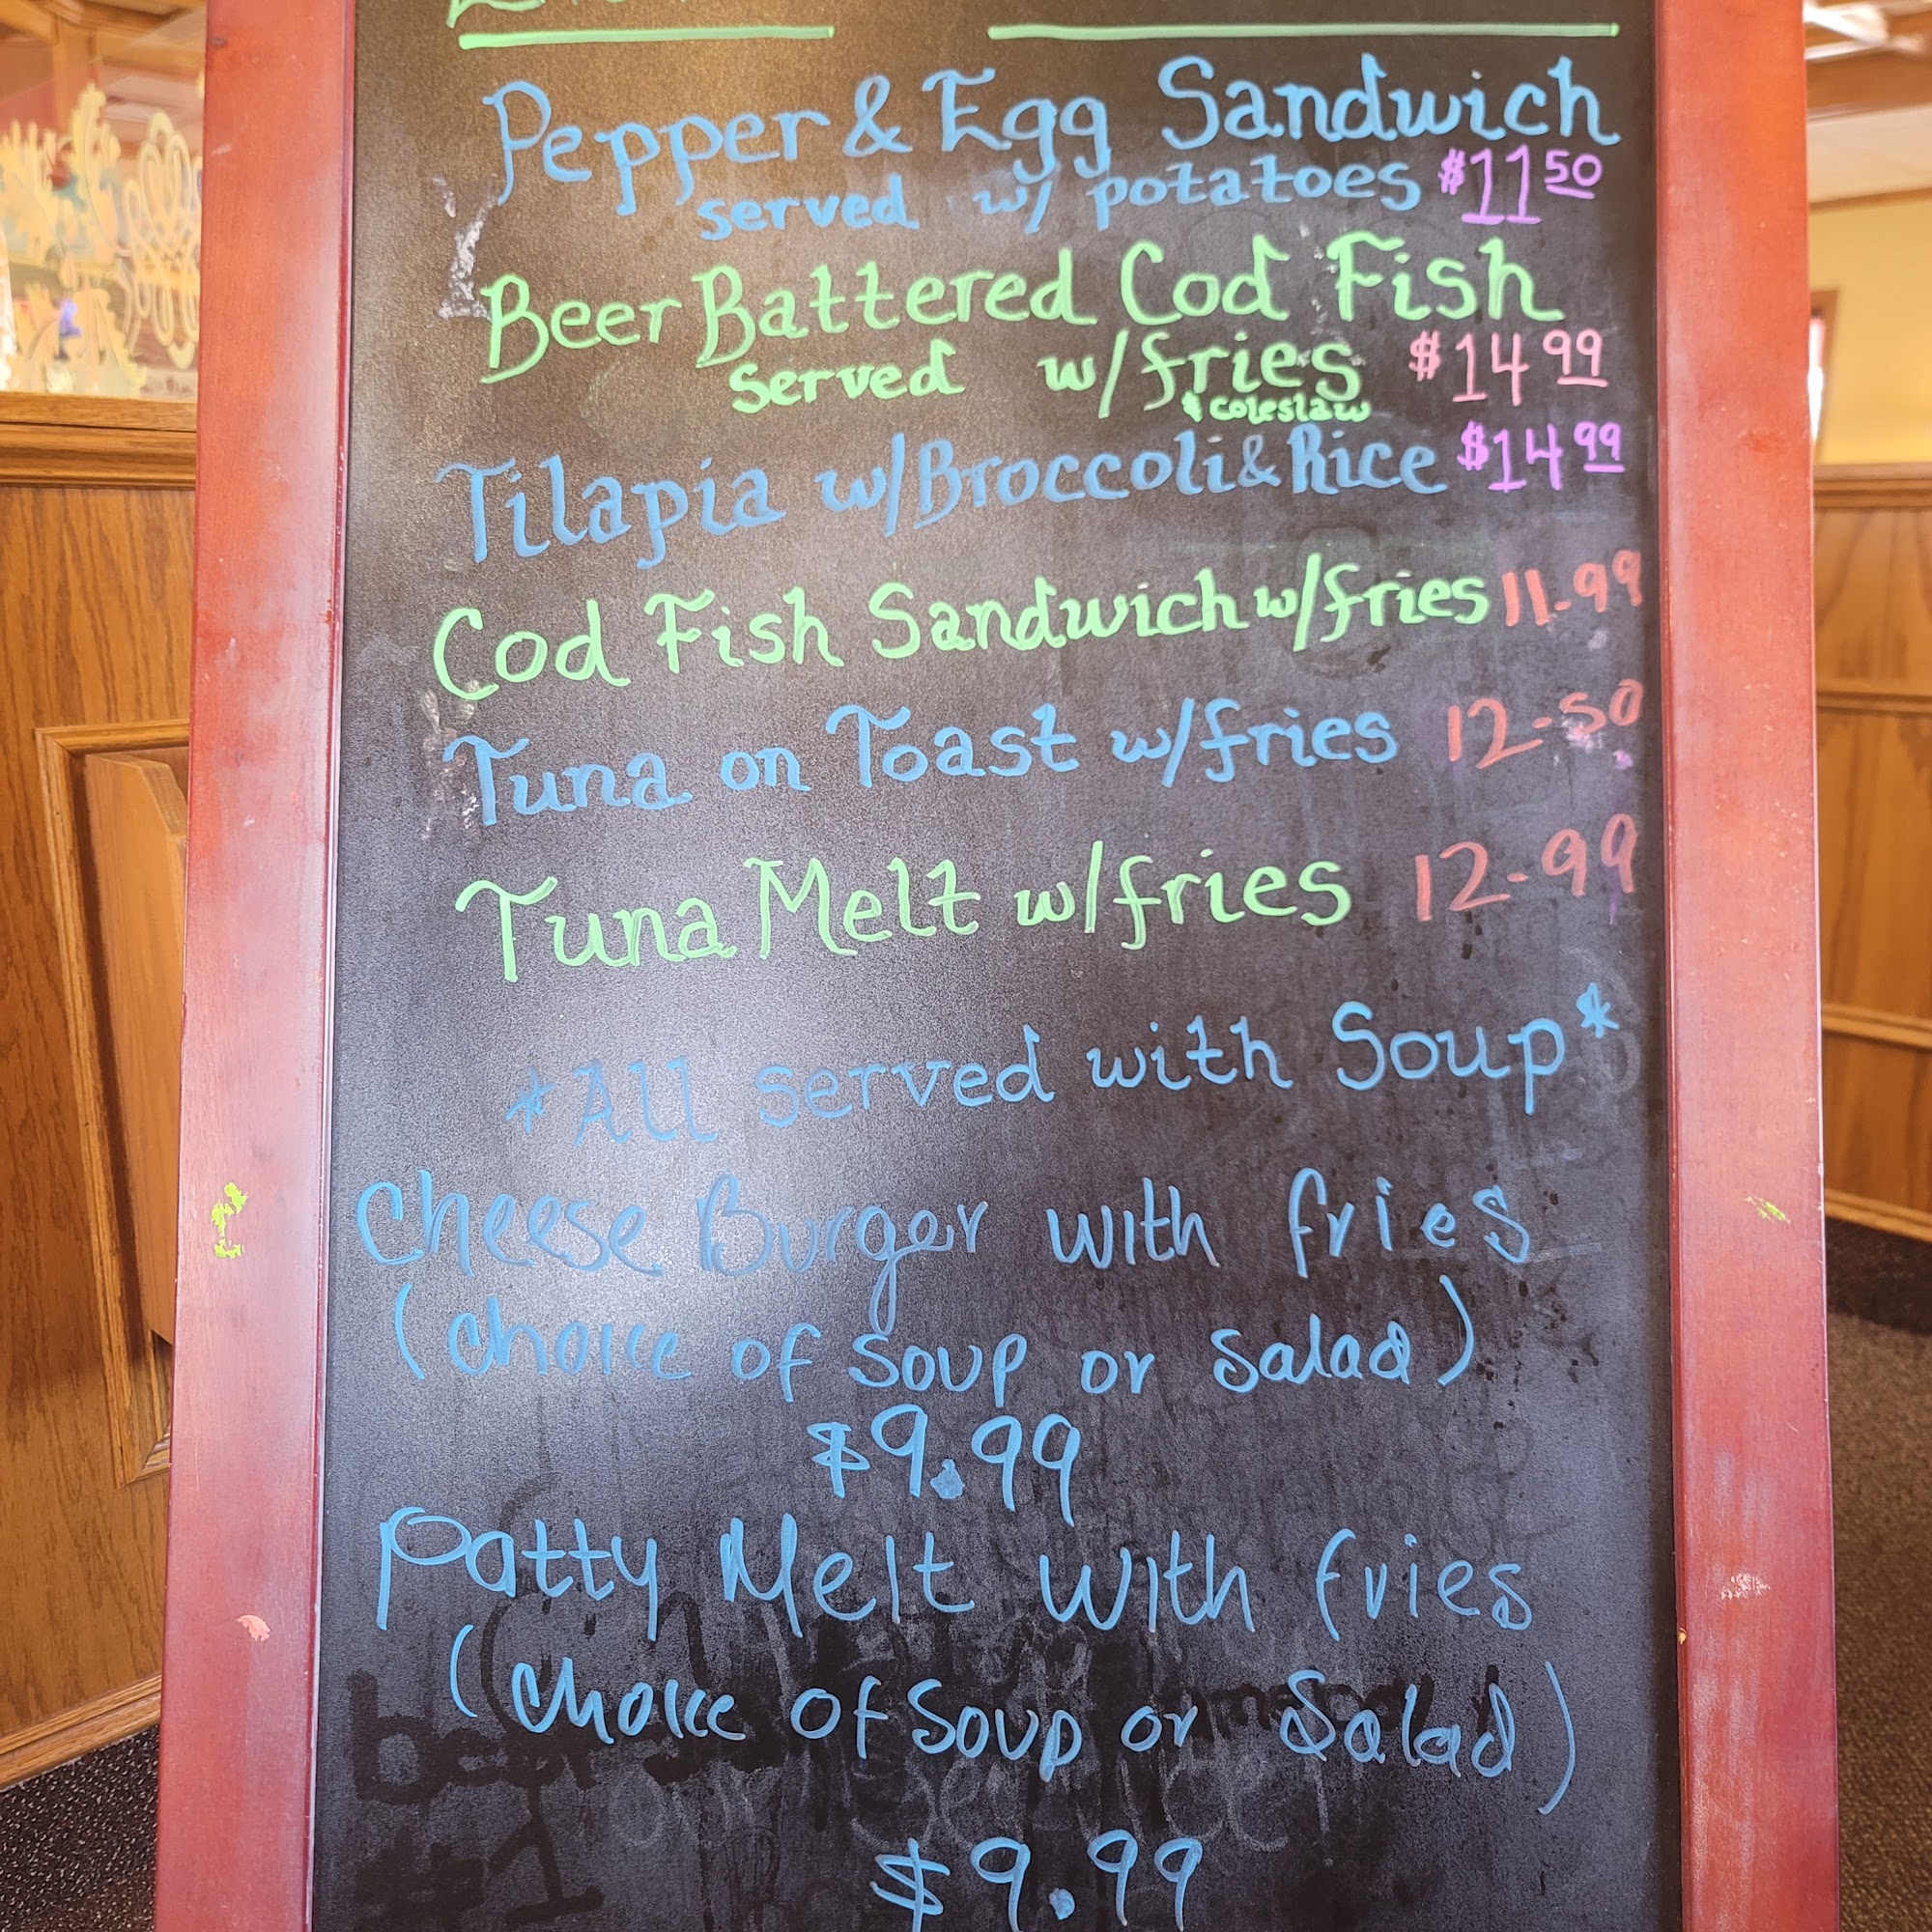 Pepper & Egg Sandwich
served w/ potatoes $11 50
Beer Battered Cod Fish
served w/fries $14 99
& coleslaw
Tilapia w/Broccoli & Rice $14 99
Cod Fish Sandwich w/fries 11-99
Tuna on Toast w/fries 12-50
Tuna Melt w/fries 12-99
*All served with Soup*
Cheese Burger with fries
(choice of soup or salad)
$9.99
Patty Melt with fries
(choice of soup or salad)
$9.99